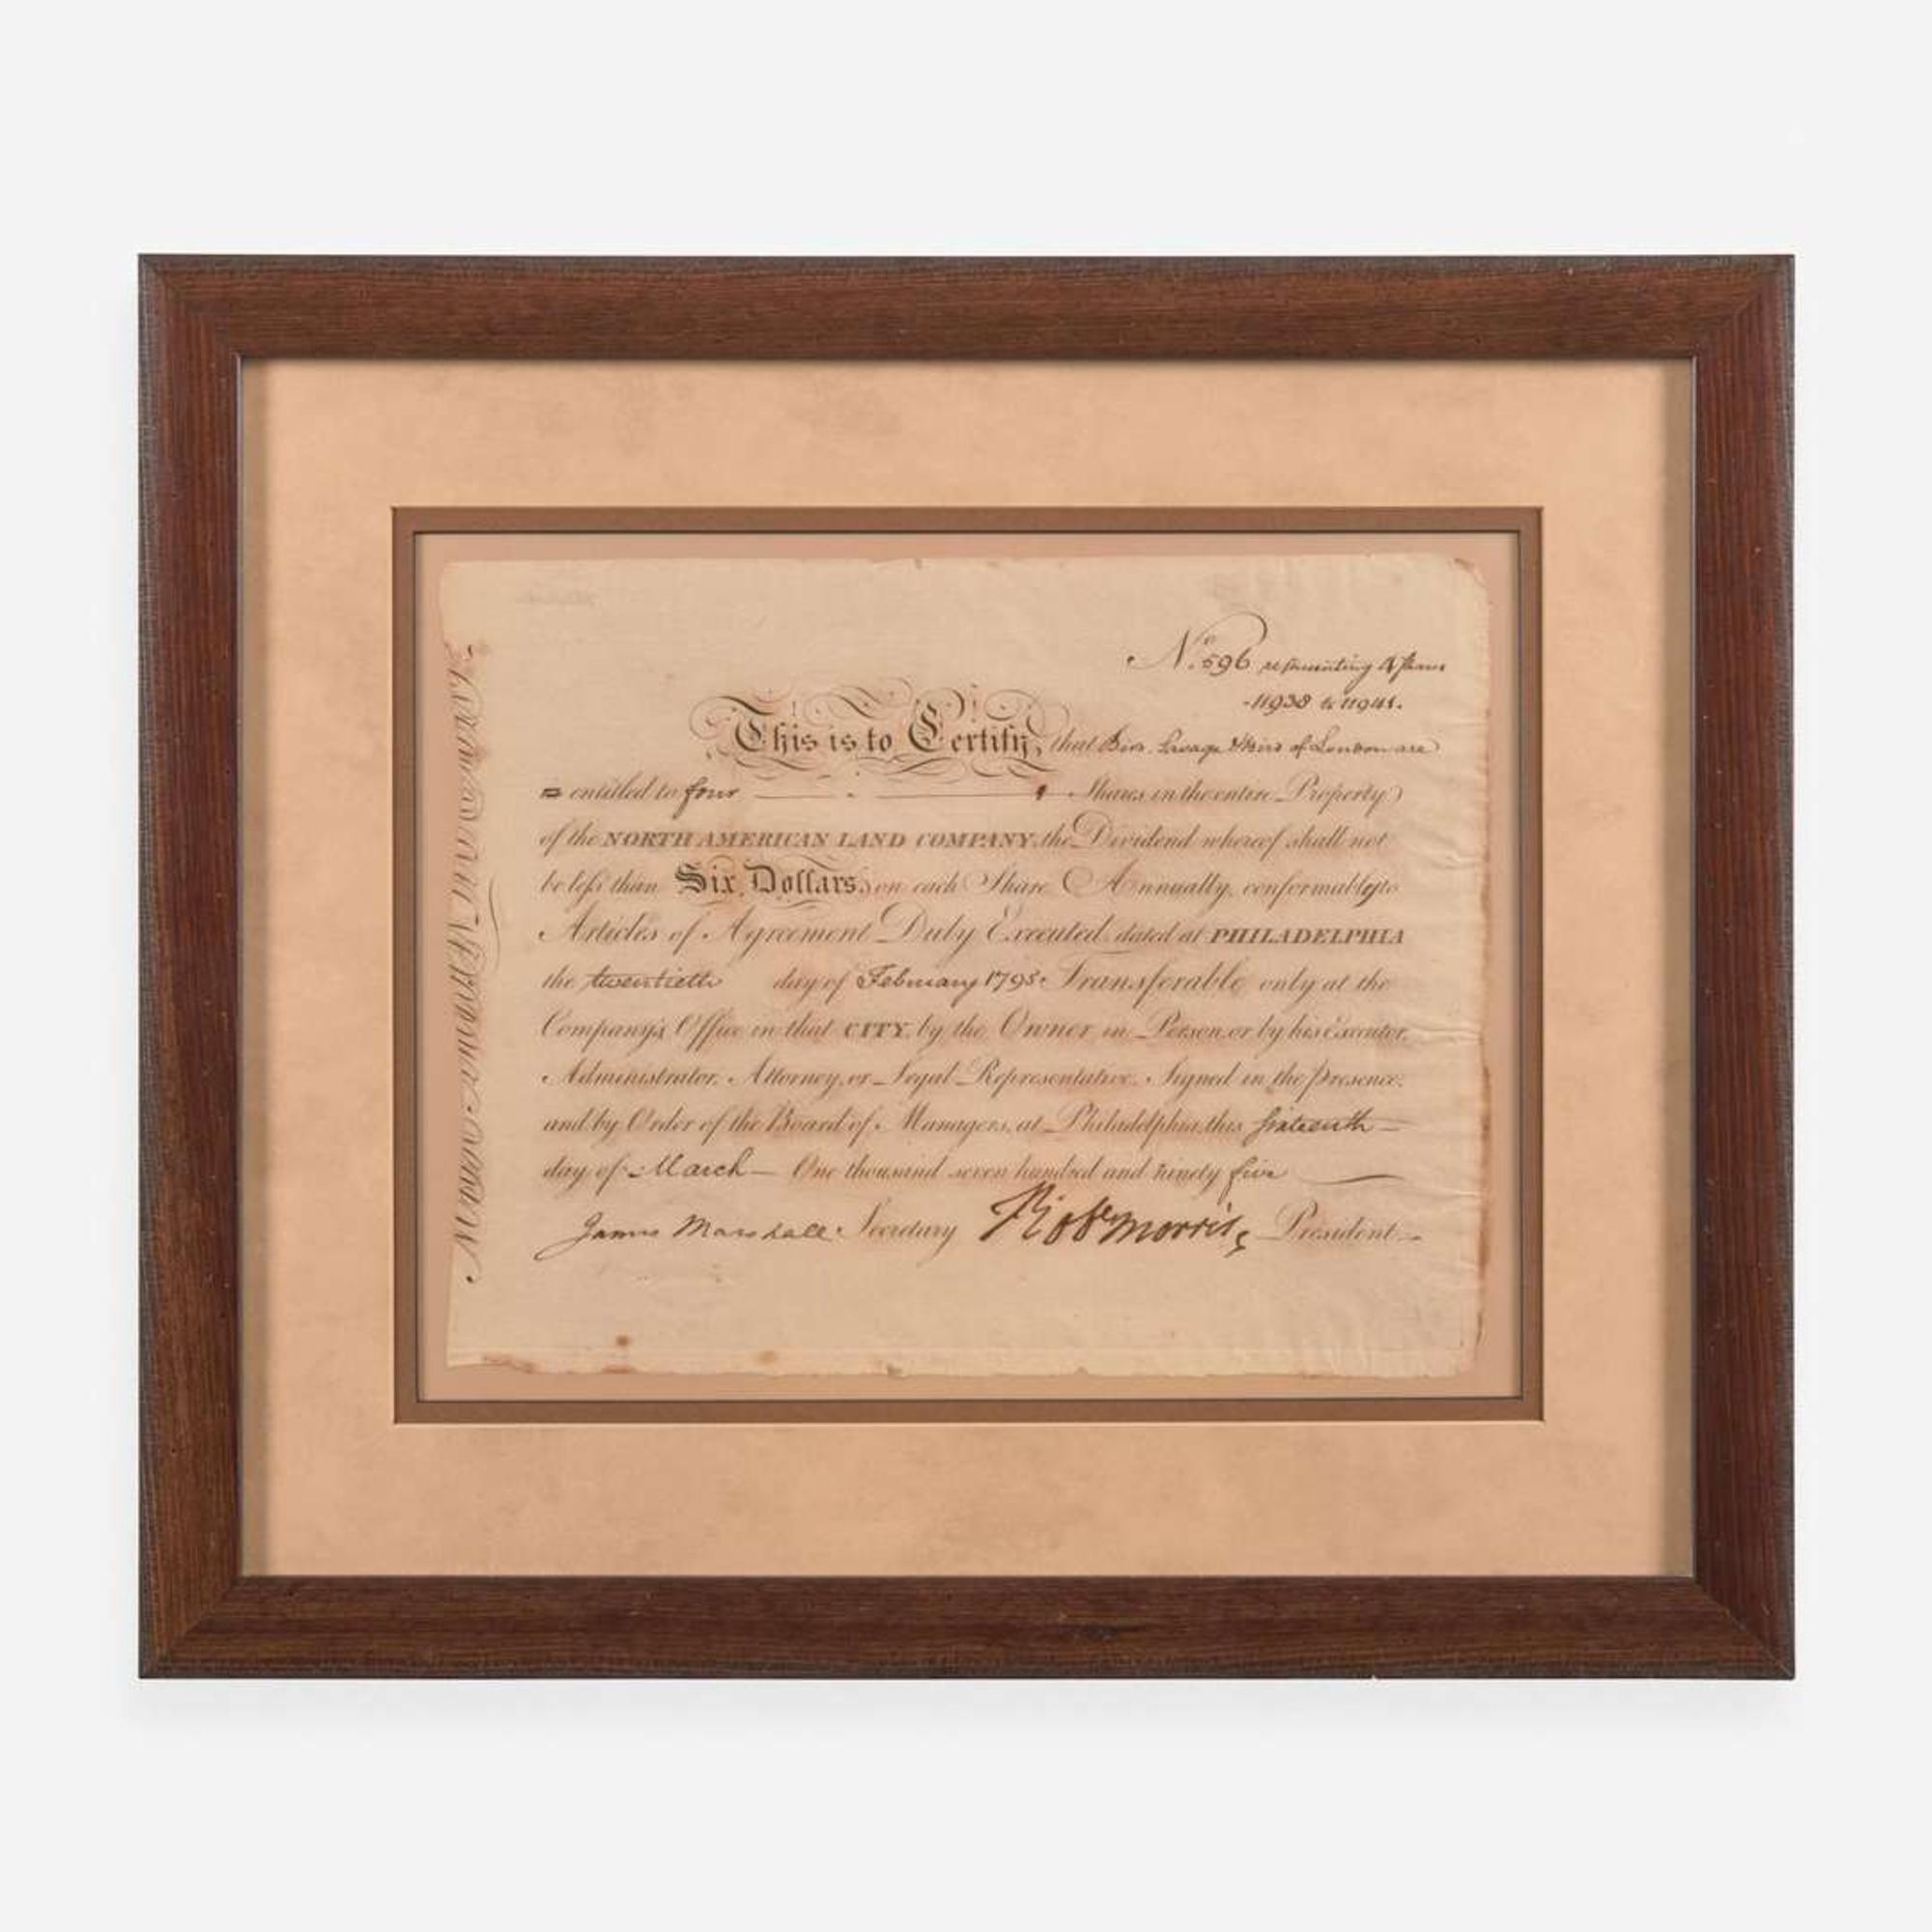 No. 596 representing 4 Shares
11938 to 11941.
This is to Certify, that Bird, Savage & Bird of London are
entitled to four 4 Shares in the entire Property
of the NORTH AMERICAN LAND COMPANY, the Dividend whereof shall not
be less than Six Dollars on each Share Annually, conformably to
Articles of Agreement Duly Executed dated at PHILADELPHIA
the twentieth day of February 1795. Transferable only at the
Company's Office in that CITY, by the Owner in Person, or by his Executor,
Administrator, Attorney, or Legal Representative. Signed in the presence,
and by Order of the Board of Managers, at Philadelphia, this sixteenth
day of March One thousand seven hundred and ninety five
James Marshall Secretary Robt Morris President